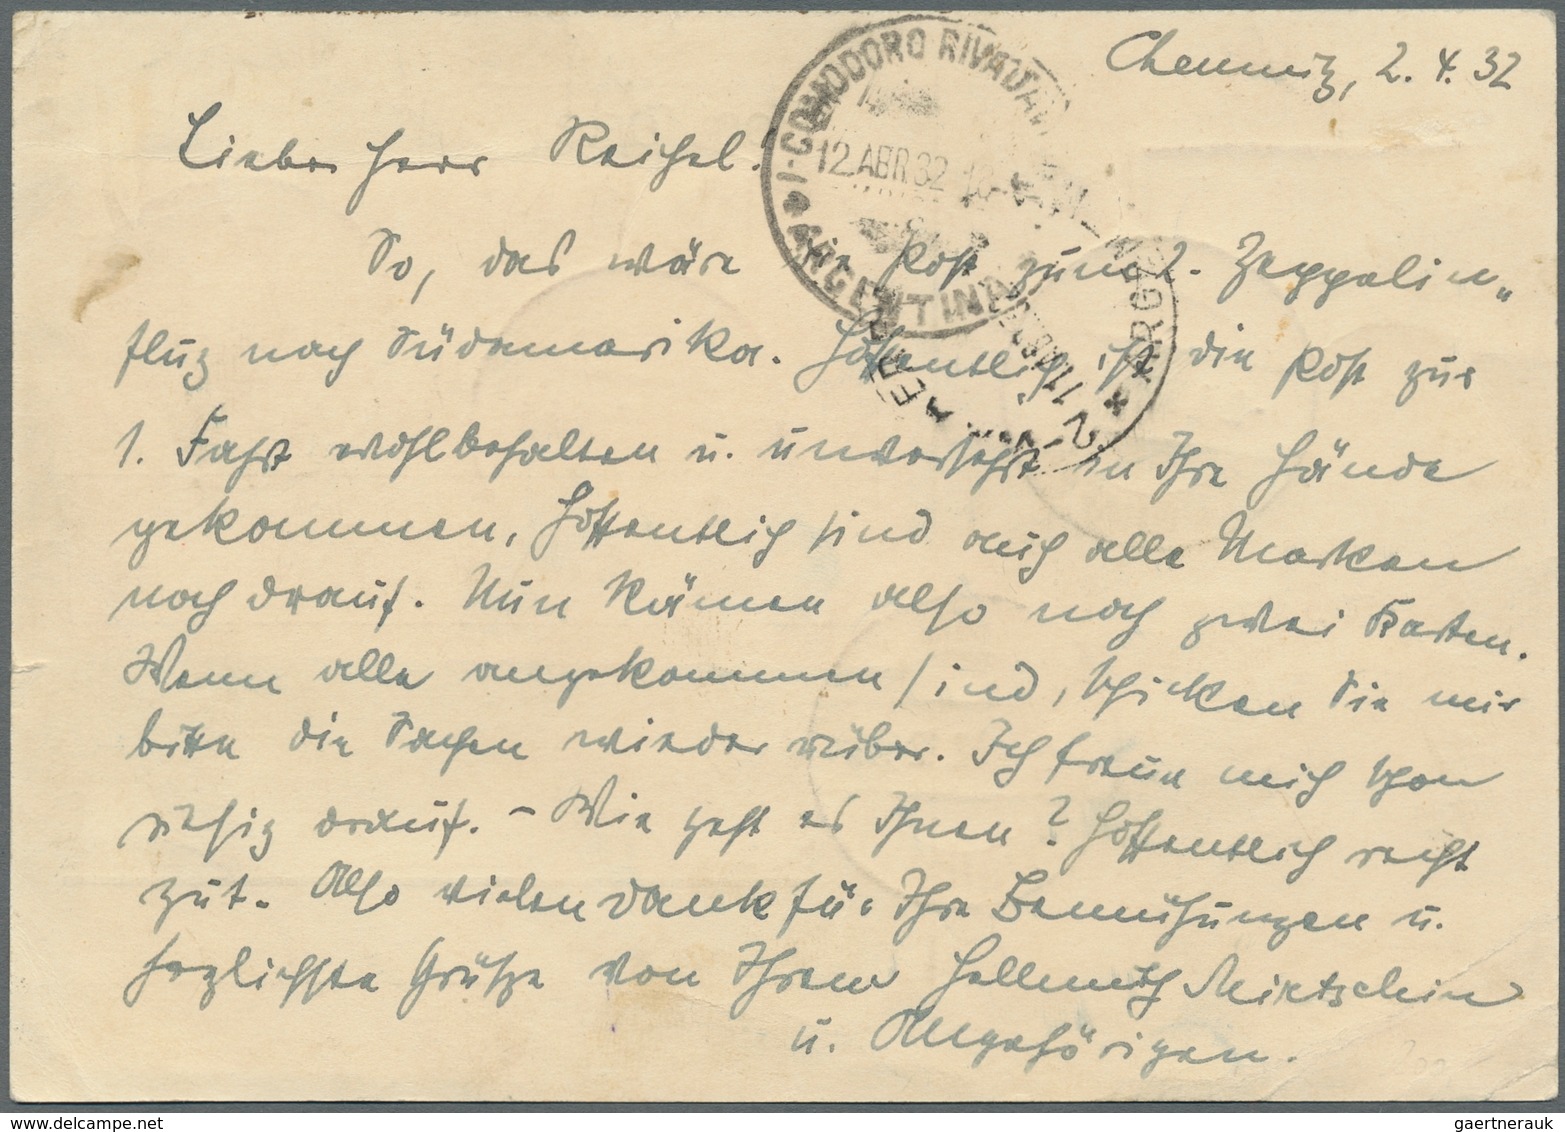 Chemnitz, 2. 4. 32
Lieber Herr Reichel!
So, das wäre die Post zum 2. Zeppelin„
flug nach Südamerika. Hoffentlich ist die Post zur
1. Fahrt wohlbehalten u. unversehrt in Ihre Hände
gekommen. Hoffentlich sind auch alle Marken
noch drauf. Nun kämen also noch zwei Karten.
Wenn alle angekommen sind, schicken Sie mir
bitte die Sachen wieder rüber. Ich freue mich schon
riesig drauf. – Wie geht es Ihnen? Hoffentlich recht
gut. Also vielen Dank für Ihre Bemühungen u.
herzlichste Grüße von Ihrem Hellmuth
u. Angehörigen.
1-COMODORO RIVADAVIA
12.ABR 32
ARGENTINA
gaertnerauk